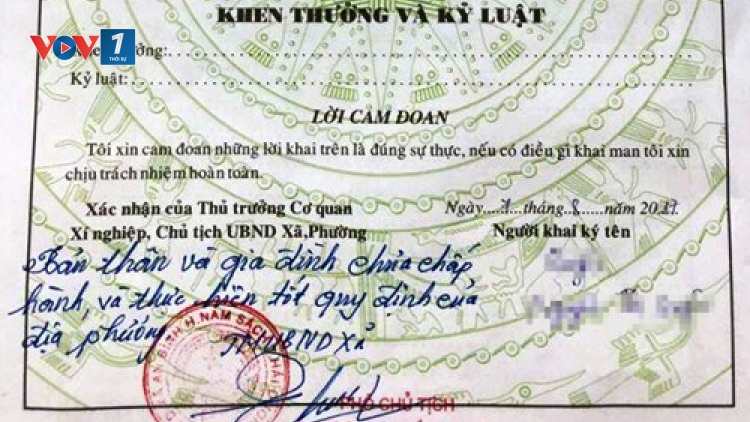 KHEN THƯỞNG VÀ KỶ LUẬT
VOV1
THỜI SỰ
thưởng:
Kỷ luật:
LỜI CAM ĐOAN
Tôi xin cam đoan những lời khai trên là đúng sự thực, nếu có điều gì khai man tôi xin
chịu trách nhiệm hoàn toàn.
Xác nhận của Thủ trưởng Cơ quan
Xí nghiệp, Chủ tịch UBND Xã,Phường
Ngày.....7....tháng...8.....năm 2017
Người khai ký tên
Bản thân và gia đình chưa chấp
hành, và thực hiện tốt quy định của
địa phương
TM UBND Xã
H.NAM SÁCH
PHÓ CHỦ TỊCH